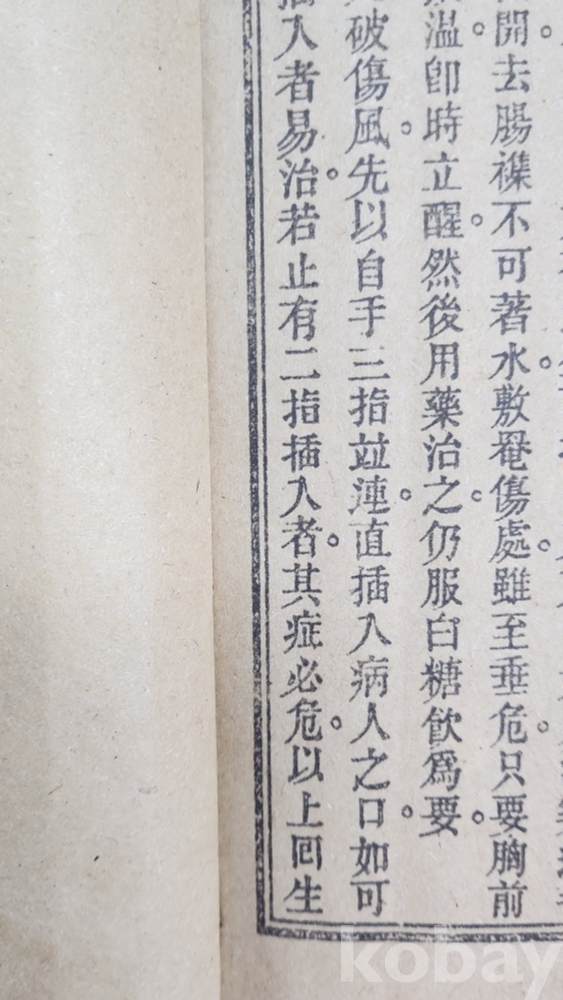 開。去腸襍不可著水。敷罨傷處。雖至垂危。只要胸前
温。卽時立醒。然後用藥治之。仍服白糖飲爲要。
破傷風。先以自手三指竝連。直插入病人之口。如可
入者易治。若止有二指插入者。其症必危。以上回生
kobay